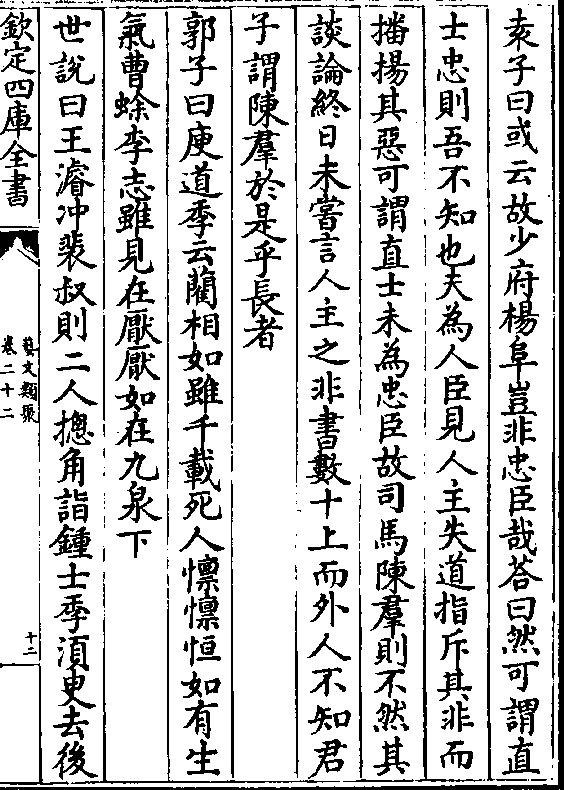 袁子曰或云故少府楊阜豈非忠臣哉荅曰然可謂直
士忠則吾不知也夫為人臣見人主失道指斥其非而
播揚其惡可謂直士未為忠臣故司馬陳羣則不然其
談論終日未嘗言人主之非書數十上而外人不知君
子謂陳羣於是乎長者
郭子曰庾道季云藺相如雖千載死人懍懍恒如有生
氣曹蜍李志雖見在厭厭如在九泉下
世說曰王濬沖裴叔則二人摠角詣鍾士季須臾去後
欽定四庫全書
藝文類聚
卷二十二
十二